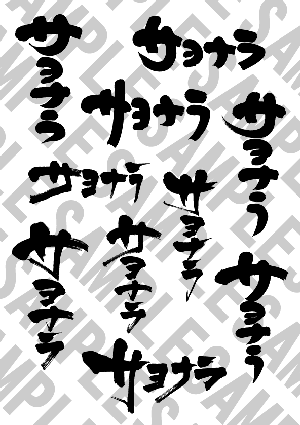 サヨナラ
サヨナラ
サヨナラ
サヨナラ
サヨナラ
サヨナラ
サヨナラ
サヨナラ
サヨナラ
サヨナラ
SAMPLE SAMPLE SAMPLE